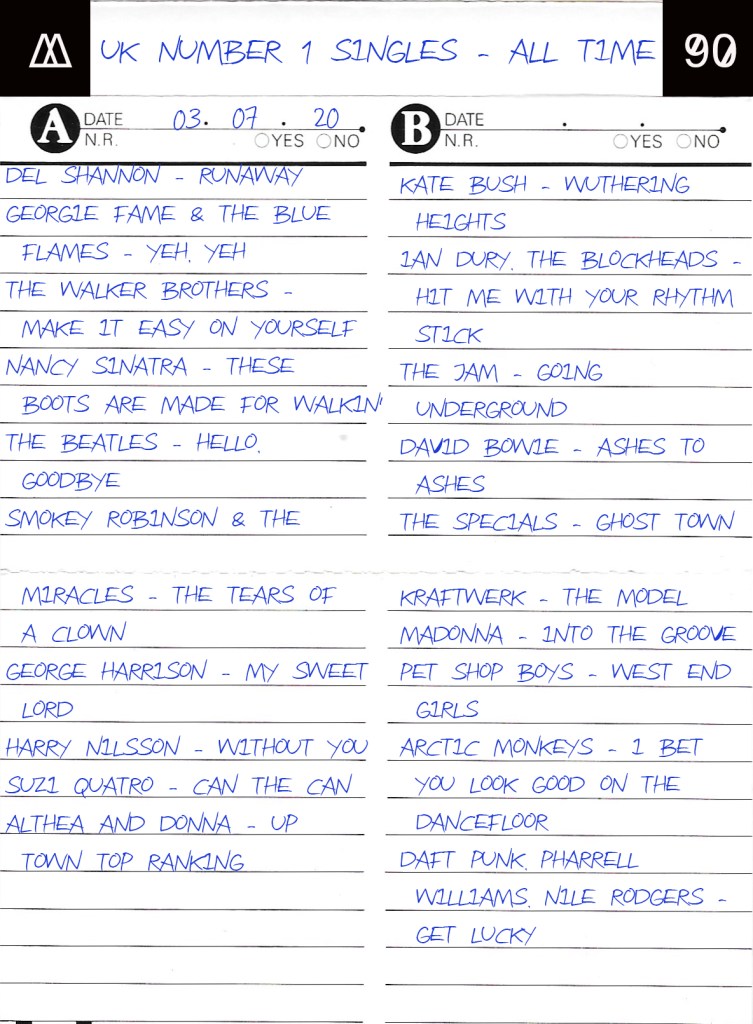 UK NUMBER 1 SINGLES - ALL TIME
90
A DATE 03. 07. 20
N.R. YES NO
DEL SHANNON - RUNAWAY
GEORGIE FAME & THE BLUE
FLAMES - YEH, YEH
THE WALKER BROTHERS -
MAKE IT EASY ON YOURSELF
NANCY SINATRA - THESE
BOOTS ARE MADE FOR WALKIN'
THE BEATLES - HELLO,
GOODBYE
SMOKEY ROBINSON & THE
MIRACLES - THE TEARS OF
A CLOWN
GEORGE HARRISON - MY SWEET
LORD
HARRY NILSSON - WITHOUT YOU
SUZI QUATRO - CAN THE CAN
ALTHEA AND DONNA - UP
TOWN TOP RANKING
B DATE . .
N.R. YES NO
KATE BUSH - WUTHERING
HEIGHTS
IAN DURY, THE BLOCKHEADS -
HIT ME WITH YOUR RHYTHM
STICK
THE JAM - GOING
UNDERGROUND
DAVID BOWIE - ASHES TO
ASHES
THE SPECIALS - GHOST TOWN
KRAFTWERK - THE MODEL
MADONNA - INTO THE GROOVE
PET SHOP BOYS - WEST END
GIRLS
ARCTIC MONKEYS - I BET
YOU LOOK GOOD ON THE
DANCEFLOOR
DAFT PUNK, PHARRELL
WILLIAMS, NILE RODGERS -
GET LUCKY